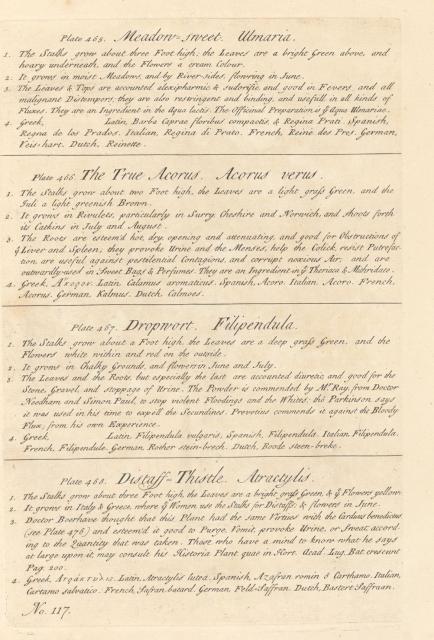 Plate 465. Meadow-sweet. Ulmaria.
1. The Stalks grow about three Foot high; the Leaves are a bright Green above, and
hoary underneath, and the Flowers a cream Colour.
2. It grows in moist Meadows, and by River-sides, flowring in June.
3. The Leaves & Tops are accounted alexipharmic & sudorific, and good in Fevers, and all
malignant Distempers; they are also restringent and binding, and usefull in all kinds of
Fluxes. They are an Ingredient in the Aqua lactis. The Officinal Preparation is ye Aqua Ulmariae.
4. Greek, Latin, Barba Caprae floribus compactis, & Regina Prati. Spanish,
Regna de los Prados. Italian, Regina di Prato. French, Reine des Pres. German,
Geis-bart. Dutch, Reinette.
Plate 466. The True Acorus. Acorus verus.
1. The Stalks grow about two Foot high, the Leaves are a light grass Green, and the
Juli a light greenish Brown.
2. It grows in Rivulets, particularly in Surry, Cheshire and Norwich, and shoots forth
its Catkins in July and August.
3. The Roots are esteem'd hot, dry, opening and attenuating, and good for Obstructions of
ye Liver and Spleen; they provoke Urine and the Menses, help the Colick, resist Putrefac-
tion, are useful against pestilential Contagions, and corrupt noxious Air; and are
outwardly used in Sweet Bags & Perfumes. They are an Ingredient in ye Theriaca & Mithridate.
4. Greek, Ἄκορον. Latin, Calamus aromaticus. Spanish, Acoro. Italian, Acoro. French,
Acorus. German, Kalmus. Dutch, Calmoes.
Plate 467. Dropwort. Filipendula.
1. The Stalks grow about a Foot high, the Leaves are a deep grass Green, and the
Flowers white within and red on the outside.
2. It grows in Chalky Grounds, and flowers in June and July.
3. The Leaves and the Roots, but especially the last are accounted diuretic and good for the
Stone, Gravel, and stoppage of Urine. The Powder is commended by Mr. Ray, from Doctor
Needham and Simon Paul, to stop violent Floodings and the Whites; tho Parkinson says
it was used in his time to expell the Secundines. Prevotius commends it against the Bloody
Flux, from his own Experience.
4. Greek, Latin, Filipendula vulgaris. Spanish, Filipendula. Italian, Filipendula.
French, Filipendule. German, Rother stein-brech. Dutch, Roode steen-breke.
Plate 468. Distaff-Thistle. Atractylis.
1. The Stalks grow about three Foot high, the Leaves are a bright grass Green, & ye Flowers yellow.
2. It grows in Italy & Greece, where ye Women use the Stalks for Distaffs; & flowers in June.
3. Doctor Boerhave thought that this Plant had the same Virtues with the Carduus benedictus
(see Plate 476) and esteem'd it good to Purge, Vomit, provoke Urine, or Sweat, accord-
ing to the Quantity that was taken. Those who have a mind to know what he says
at large upon it, may consult his Historia Plant. quae in Hort. Acad. Lug. Bat. crescunt
Pag. 200.
4. Greek, Ἀτρακτυλίς. Latin, Atractylis lutea. Spanish, Azafran romin & Carthamo. Italian,
Cartamo salvatico. French, Safran batard. German, Feld-Saffran. Dutch, Bastert Saffraan.
No. 117.